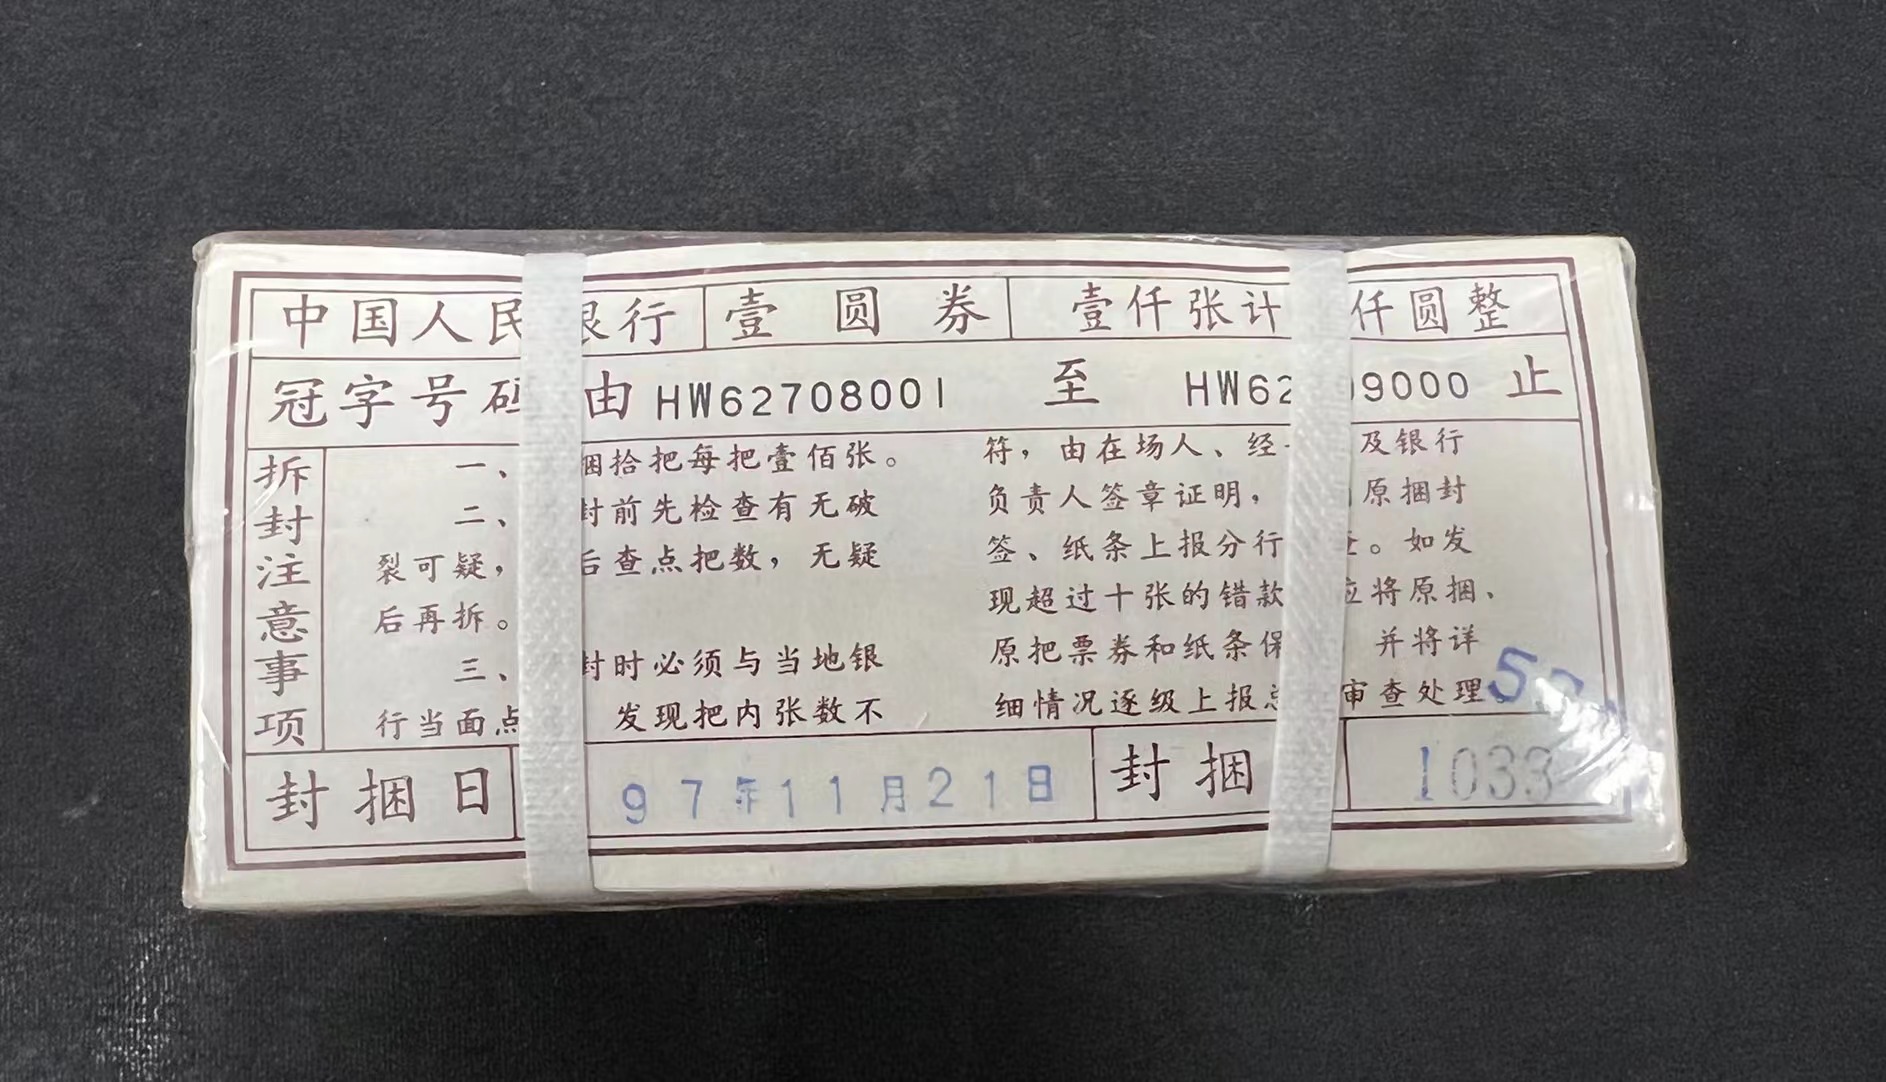 中国人民银行 壹圆券 壹仟张计 仟圆整
冠字号码 由 HW62708001 至 HW62 09000 止
拆封注意事项
一、 捆拾把每把壹佰张。
二、 封前先检查有无破
裂可疑， 后查点把数，无疑
后再拆。
三、 封时必须与当地银
行当面点 发现把内张数不
符，由在场人、经 及银行
负责人签章证明， 原捆封
签、纸条上报分行 查。如发
现超过十张的错款 应将原捆、
原把票券和纸条保 并将详
细情况逐级上报总 审查处理
封捆日 97年11月21日 封捆 1033